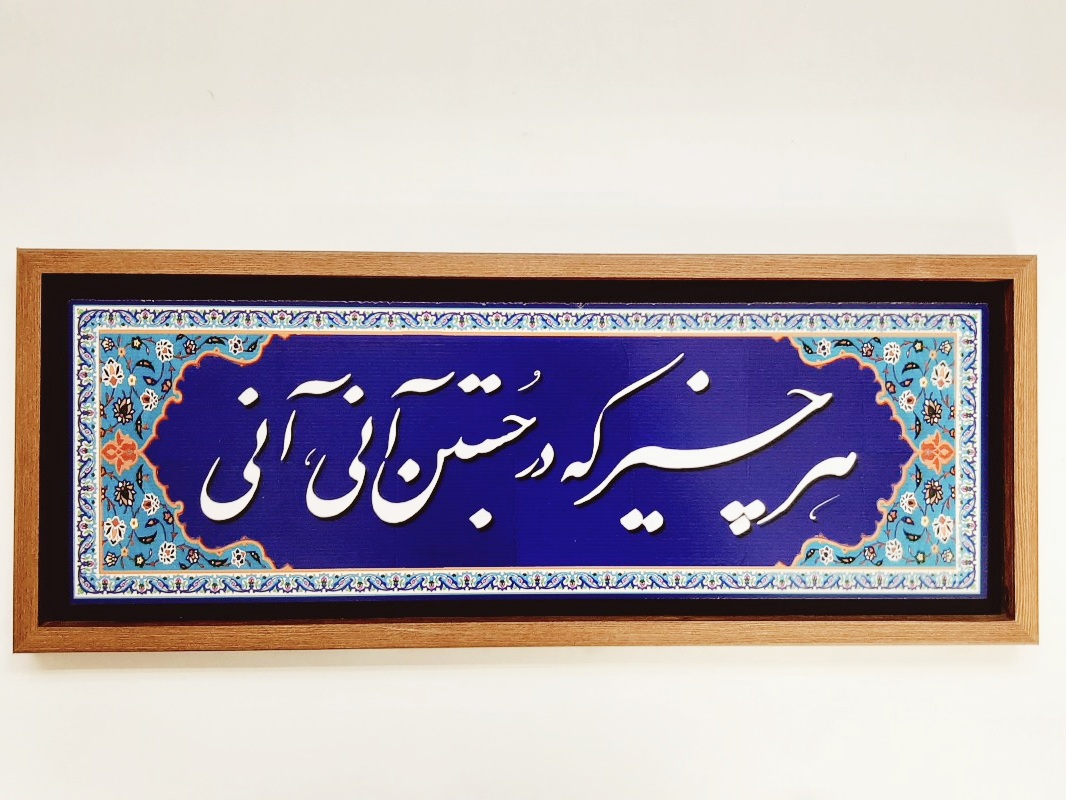 هر چیز که در جُستن آنی، آنی